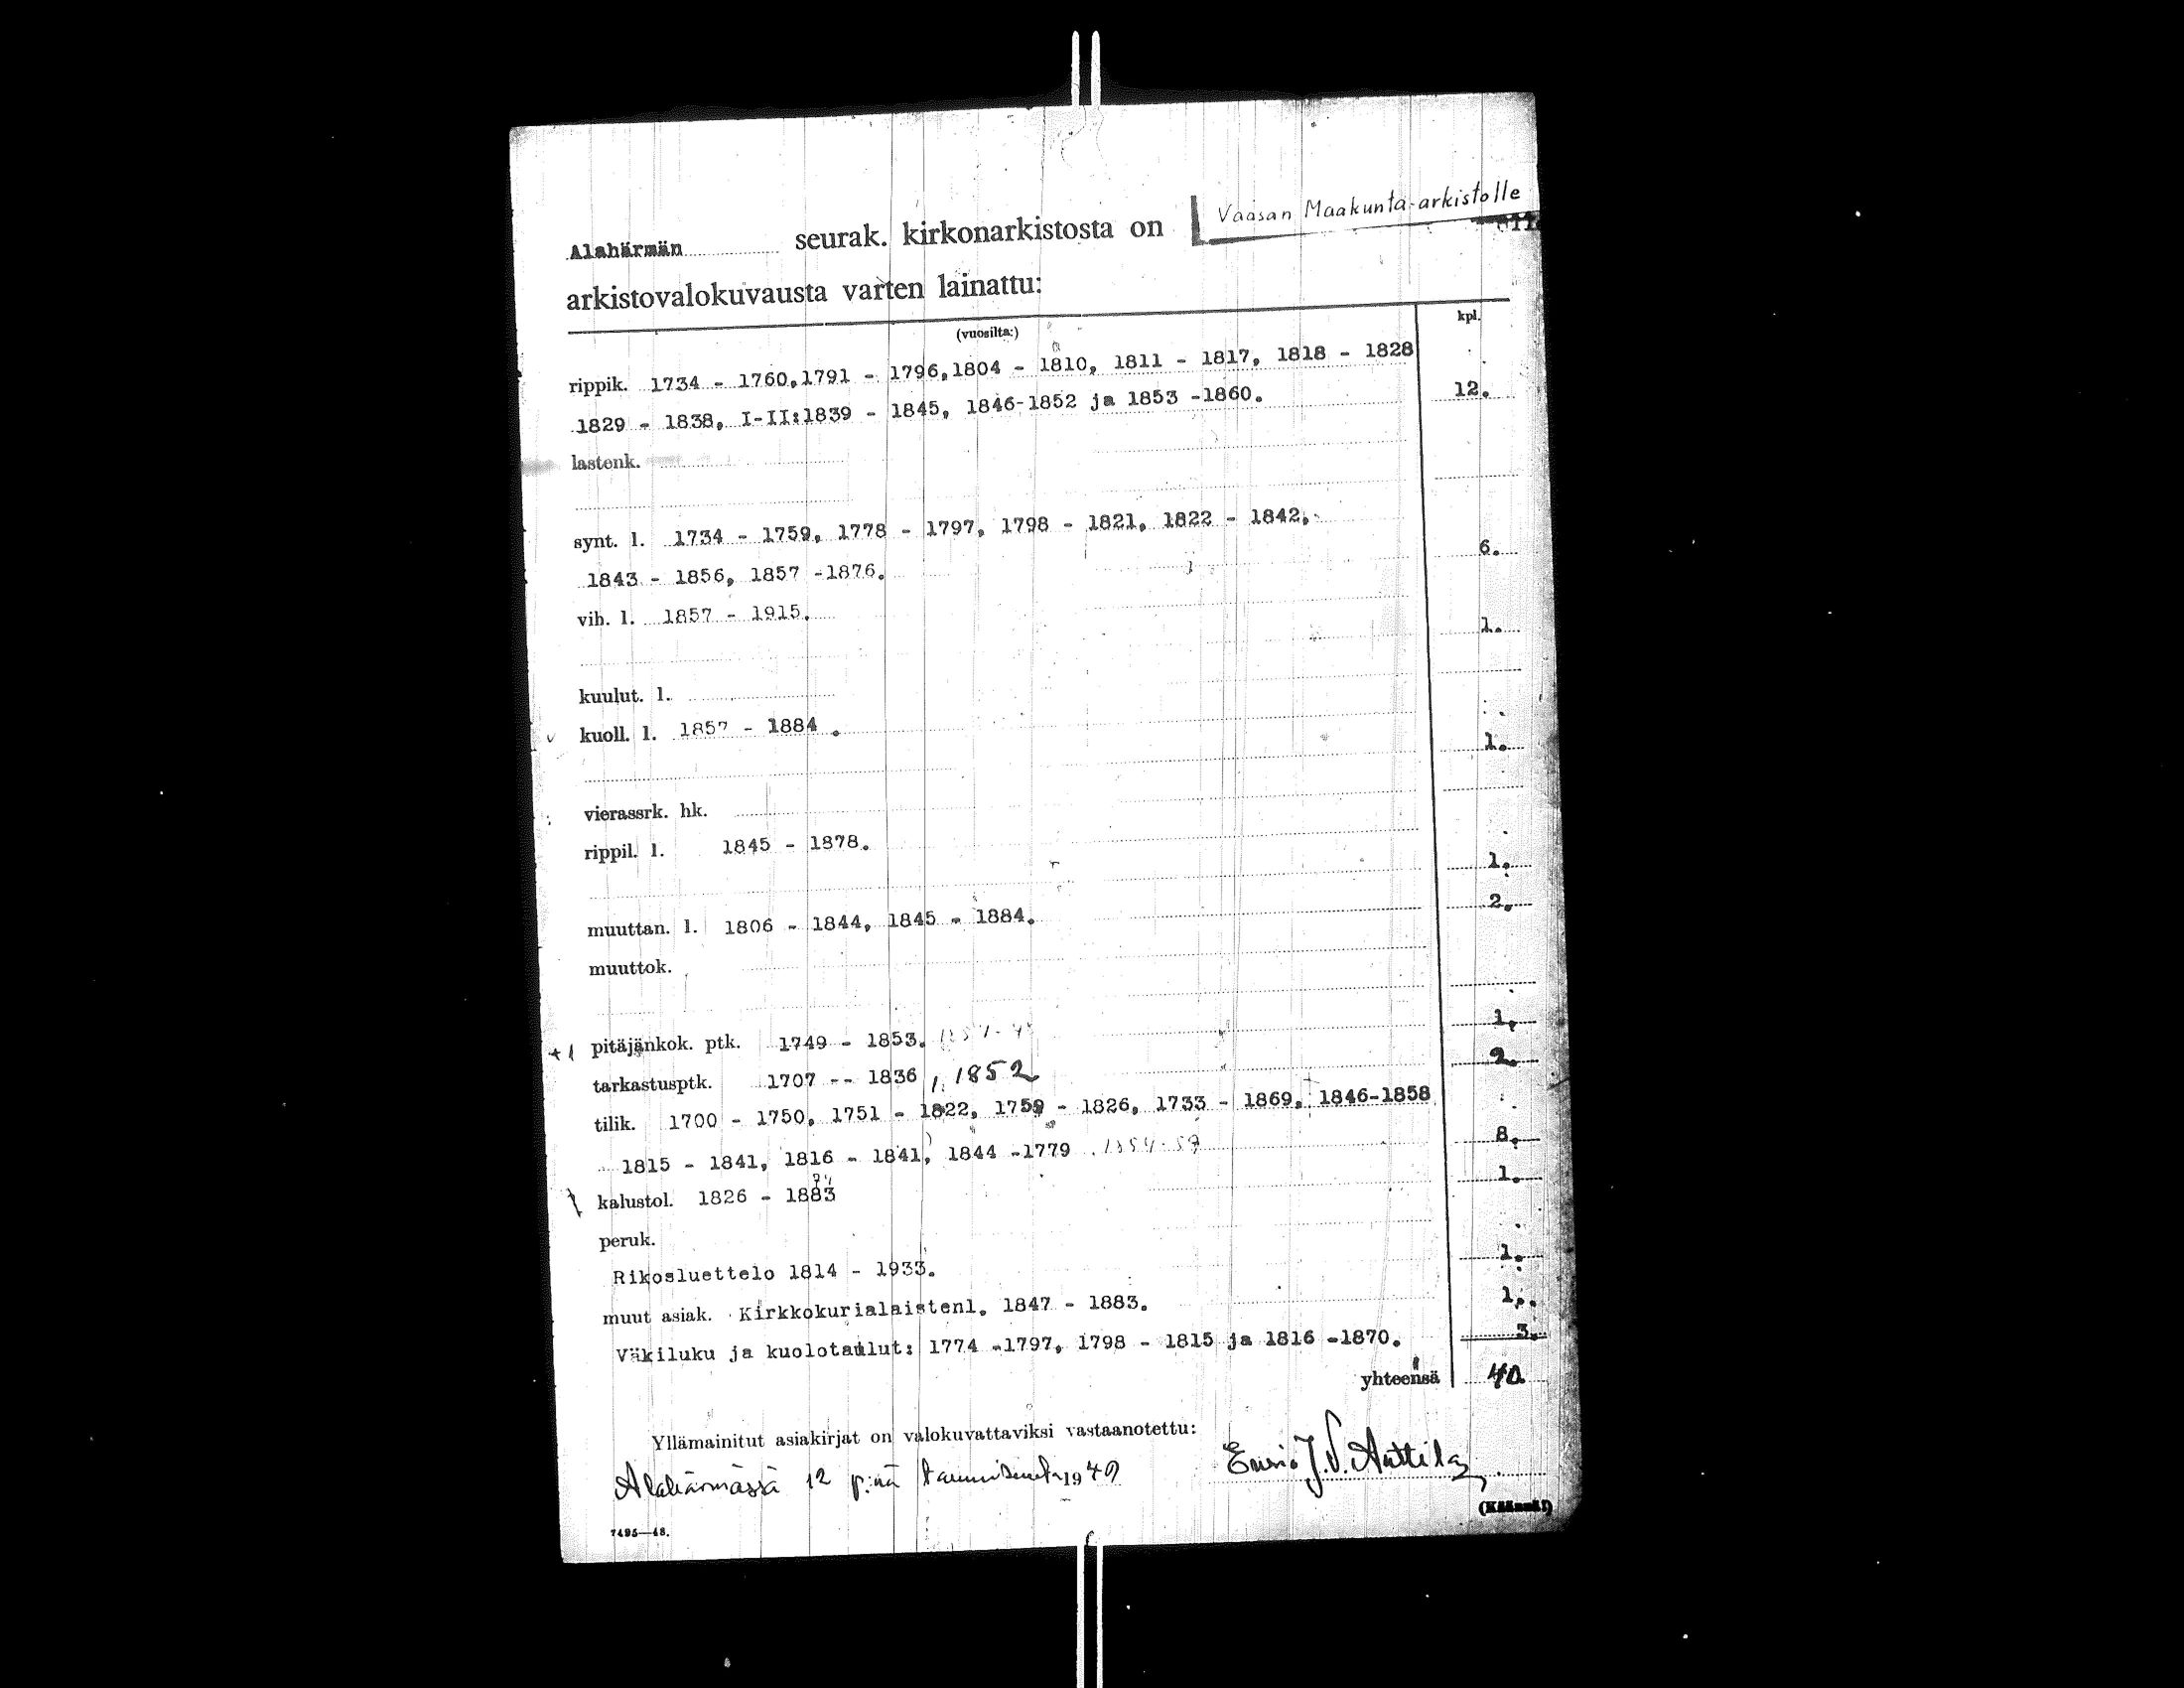 Vaasan Maakunta-arkistolle
Alahärmän seurak. kirkonarkistosta on
arkistovalokuvausta varten lainattu:
(vuosilta:) kpl.
rippik. 1734 - 1760, 1791 - 1796, 1804 - 1810, 1811 - 1817, 1818 - 1828
1829 - 1838, I-II:1839 - 1845, 1846-1852 ja 1853 -1860. 12.
lastenk.
synt. l. 1734 - 1759, 1778 - 1797, 1798 - 1821, 1822 - 1842,
1843 - 1856, 1857 -1876. 6.
vih. l. 1857 - 1915. 1.
kuulut. l.
kuoll. l. 1857 - 1884 . 1.
vierassrk. hk.
rippil. l. 1845 - 1878. 1.
muuttan. l. 1806 - 1844, 1845 - 1884. 2.
muuttok.
+1 pitäjänkok. ptk. 1749 - 1853. 1.
tarkastusptk. 1707 -- 1836, 1852 2.
tilik. 1700 - 1750, 1751 - 1822, 1759 - 1826, 1733 - 1869, 1846-1858
1815 - 1841, 1816 - 1841, 1844 -1779 . 1854-59 8.
kalustol. 1826 - 1883 1.
peruk.
Rikosluettelo 1814 - 1933. 1.
muut asiak. Kirkkokurialaistenl. 1847 - 1883. 1.
Väkiluku ja kuolotaulut: 1774 -1797, 1798 - 1815 ja 1816 -1870. 3.
yhteensä 40
Yllämainitut asiakirjat on valokuvattaviksi vastaanotettu:
Alahärmässä 12 p:nä tammikuuta 1949 J.V. Anttila
(Käännä!)
7495—48.